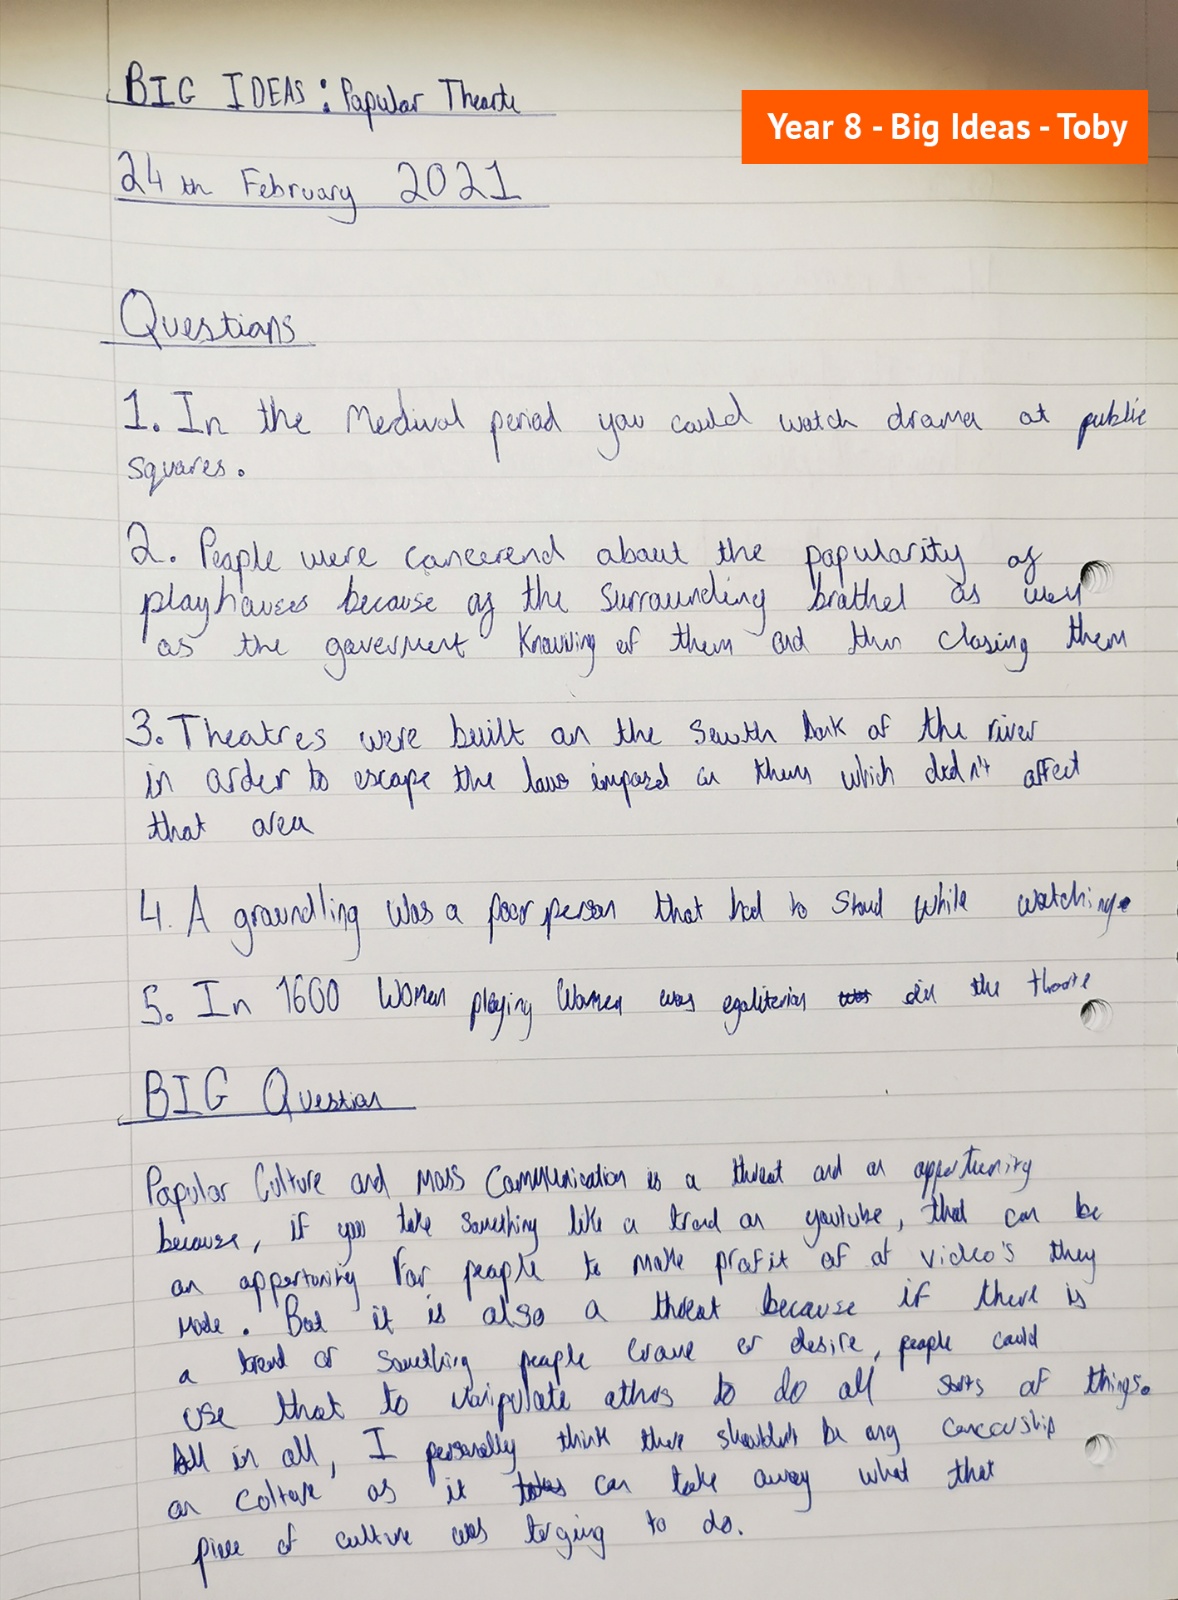 BIG IDEAS: Popular Thearte
Year 8 - Big Ideas - Toby
24th February 2021
Questions
1. In the Medival period you could watch drama at public
squares.
2. People were concerend about the popularity of
playhouses because of the surrounding brothel as well
as the goverment Knowing of them and then closing them
3. Theatres were built on the South bank of the river
in order to escape the laws imposed on them which didn't affect
that area
4. A groundling was a poor person that had to stand while watching.
5. In 1600 Women playing Women was egaliterian in the
BIG Question
Popular Culture and Mass Communication is a threat and an oppertunity
because, if you take something like a trend on youtube, that can be
an oppertunity for people to make profit of of video's they
made. But it is also a threat because if there is
a trend or something people crave or desire, people could
use that to manipulate others to do all sorts of things.
All in all, I personally think there shouldn't be any cencorship
on culture as it can take away what that
piece of culture was to do.